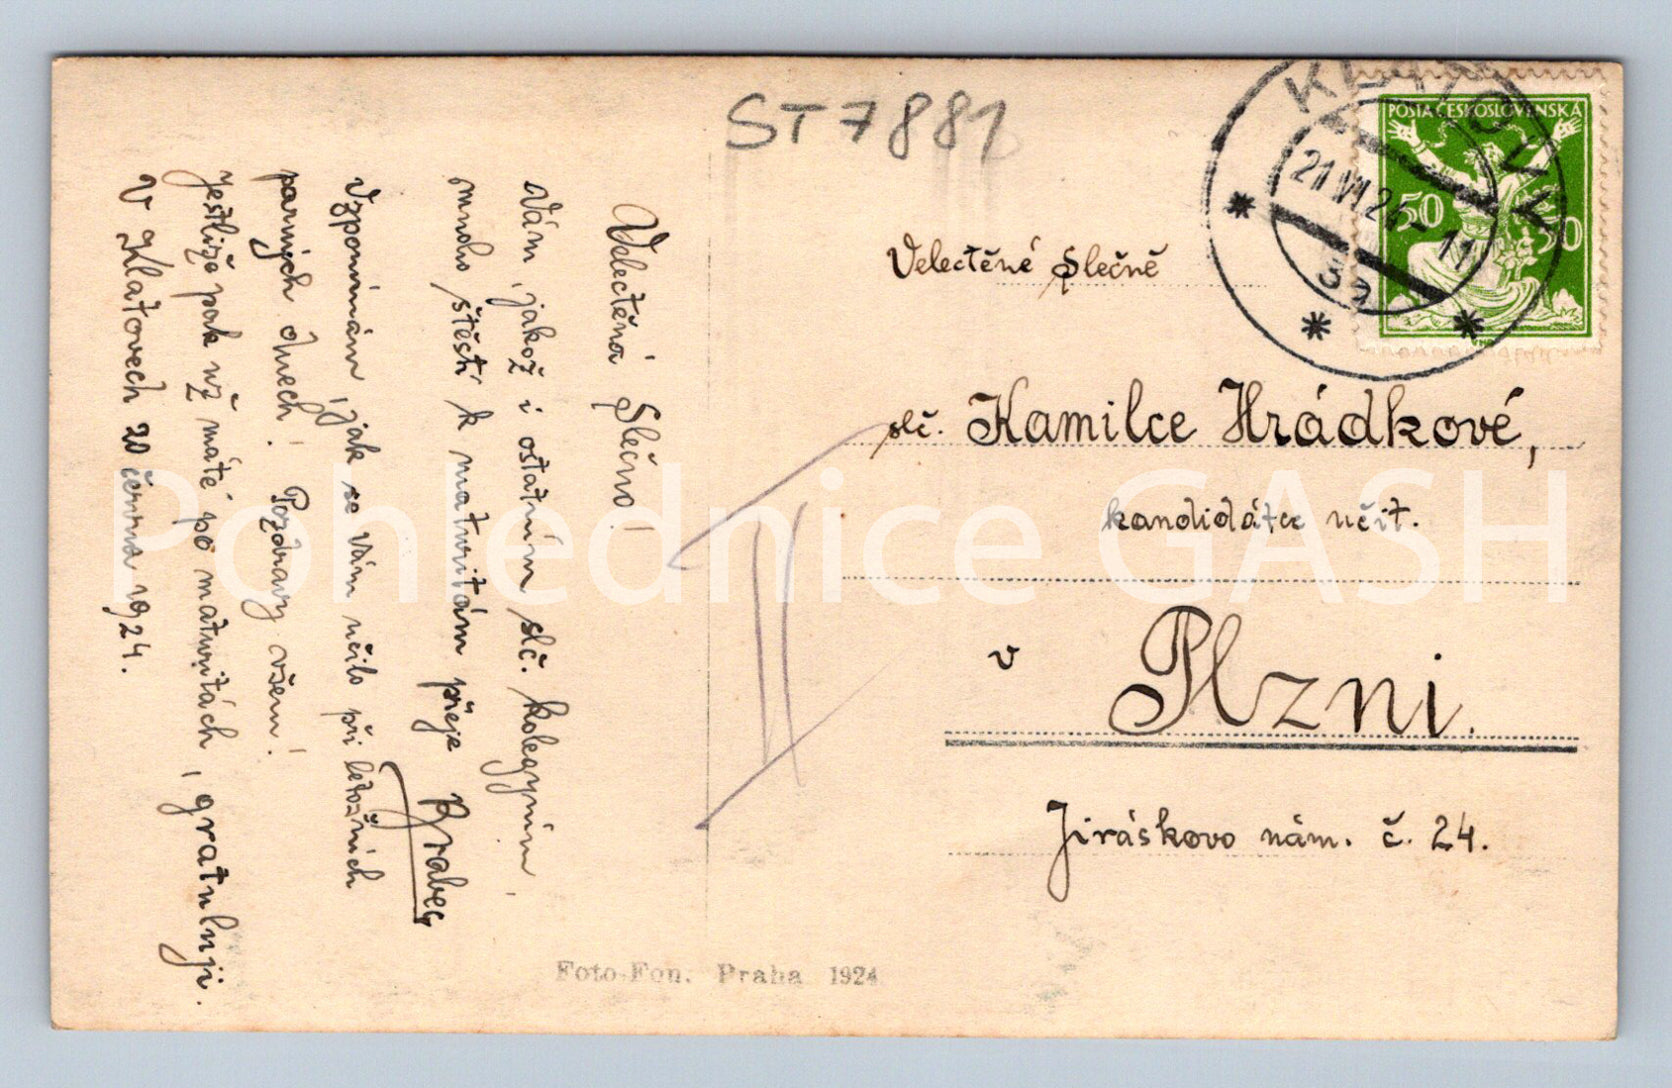 ST 7881
Velectěná Slečno!
Vám, jakož i ostatním slč. kolegyním,
mnoho štěstí k maturitám přeje Brabec
Vzpomínám, jak se Vám učilo při letošních
parných dnech! Pozdravy všem!
Jestliže pak už máte po maturitách, gratuluji.
V Klatovech 20 června 1924.
POŠTA ČESKOSLOVENSKÁ
50 50
KLATOVY
21 VI 24 - 11
3a
Velectěné slečně
slč. Kamilce Hrádkové,
kandidátce učit.
v Plzni.
Jiráskovo nám. č. 24.
Foto-Fon. Praha 1924
Pohlednice GASH